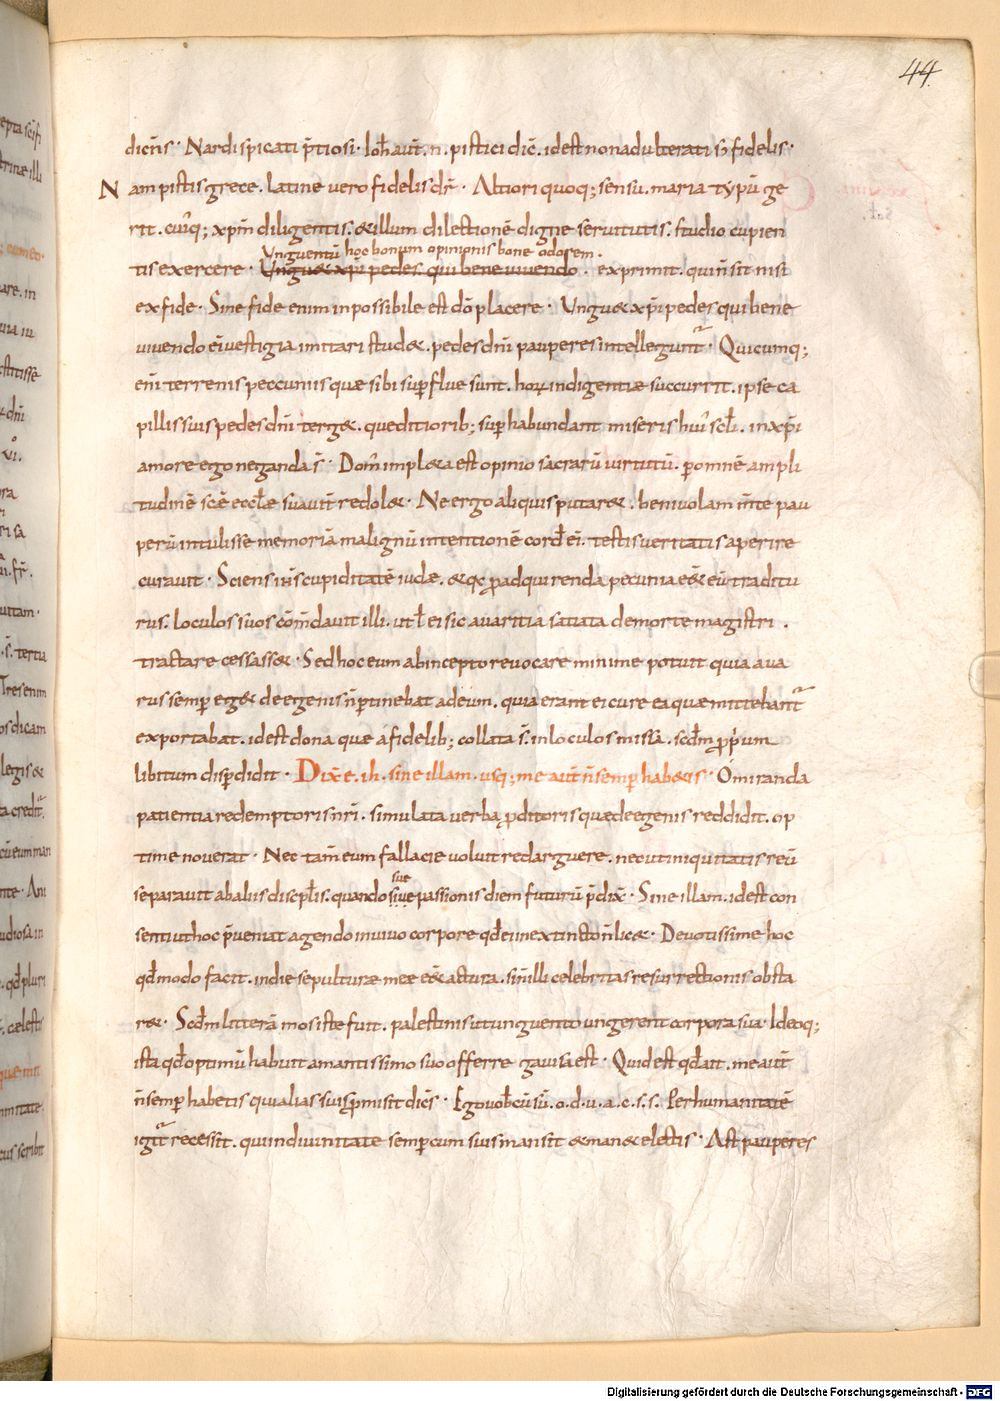 44.
dicens · Nardi spicati p̄tiosi · Ioh̄ aut̄ . n . pistici dic̄ . id est non adulterati s; fidelis ·
Nam pistis grece . latine vero fidelis dr̄ · Altiori quoq; sensu . maria typū ge
rit . cui'q; xp̄m diligentis . & illum dilectionē digne servitutis . studio cupien
Unguentū hoc bonum opinionis bone odorem .
tis exercere · Ungu& xp̄i pedes qui bene vivendo . exprimit . qui n̄ sit nisi
ex fide · Sine fide enim inpossibile est dō placere · Ungu& xp̄i pedes qui bene
vivendo ei vestigia imitari stud& . pedes dn̄i pauperes intellegunt · Quicumq;
eni terrenis peccuniis quæ sibi sup̄flue sunt . horum indigentiæ succurrit . ipse ca
pillis suis pedes dn̄i terg& . que ditiorib; sup̄habundant miseris hui' scl̄i . in xp̄i
amore ego neganda s̄ · Dom' impl&a est opinio sacrarū virtutū . p omnē ampli
tudinē scē eccl̄æ suavit̄ redol& · Ne ergo aliquis putar& . benivolam m̄te pau
perū intulisse memoriā malignū intentionē cord̄ ei . testis veritatis aperire
curavit · Sciens iḡ cupiditatē iudæ . & qō p adquirenda pecunia e& eū traditu
rus . loculos suos cōm̄davit illi . ut l̄ ei sic avaritia satiata de morte magistri .
tractare cessass& · Sed hoc eum ab incepto revocare minime potuit quia ava
rus semp̄ eg& de egenis n̄ ptinebat ad eum . quia erant ei cure ea quæ mittebant'
exportabat . id est dona quæ a fidelib; collata s̄ . in loculos missa . scd̄m pp̄rium
libitum disp̄didit · Dix̄ e . ih̄ . sine illam . usq; me aut̄ n̄ semp̄ hab&is · O miranda
patientia redemptoris nr̄i . simulata verba pditoris quæ de egenis reddidit . op
time noverat · Nec tam̄ eum fallacie voluit redarguere . nec ut iniquitatis reū
sue
separavit ab aliis discipl̄is . quando sive passionis diem futurū p̄dix̄ · Sine illam . id est con
sentiut hoc p̄veniat agendo in vivo corpore qd̄ e in extincto n̄ lic& · Devotissime hoc
qd̄ modo facit . in die sepulturæ meæ e& actura . si n̄ illi celebritas resurrectionis obsta
r& · Scd̄m litterā mos iste fuit . palestinis ut unguento ungerent corpora sua · Ideoq;
ista qd̄ optimū habuit amantissimo suo offerre gavisa est · Quid est qd̄ ait . me aut̄
n̄ semp̄ habetis qui alias suis p̄misit dic̄s · Ego vob̄cū sū . o . d . u . a . c . s . s . Per humanitatē
igit' recessit . qui in divinitate semper cum suis mansit & man& electis · Ast pauperes
Digitalisierung gefördert durch die Deutsche Forschungsgemeinschaft - DFG